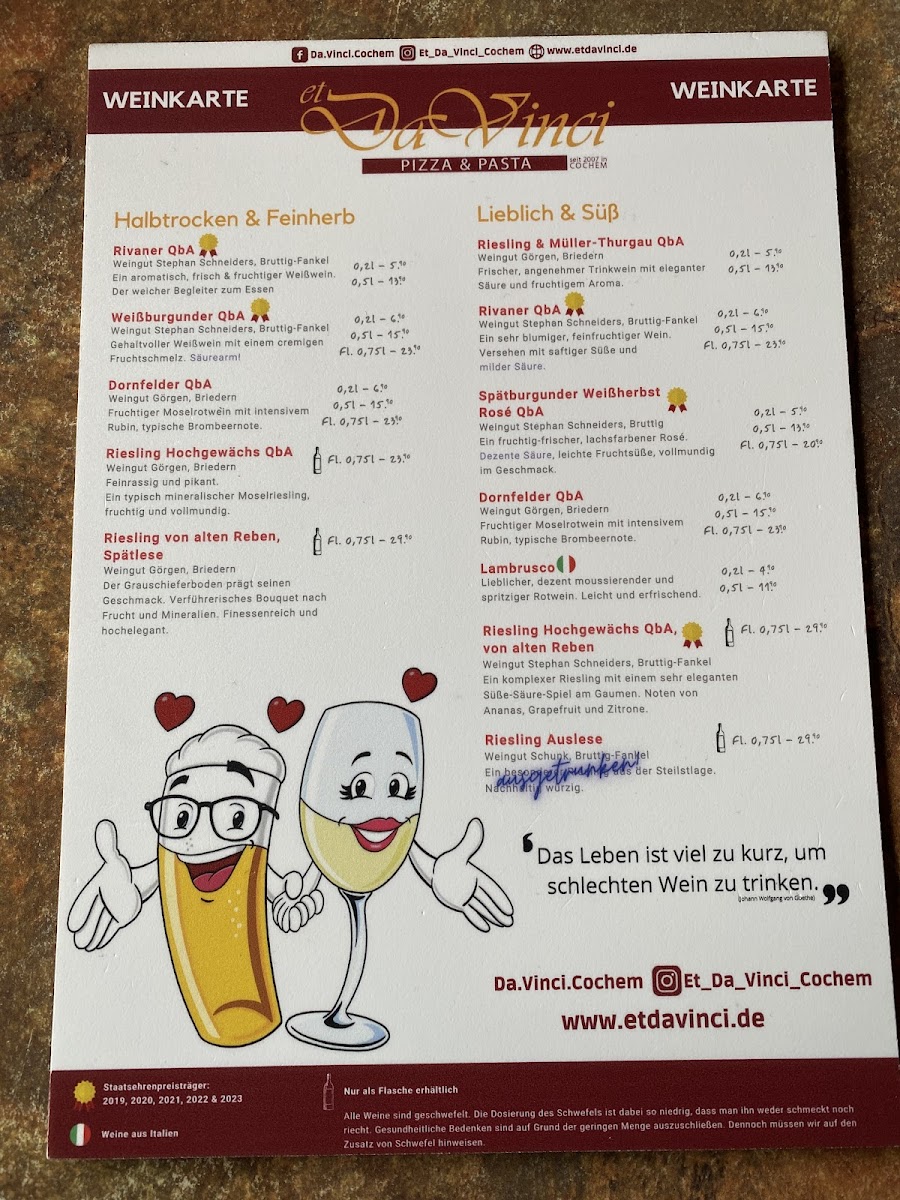 Da.Vinci.Cochem Et_Da_Vinci_Cochem www.etdavinci.de
WEINKARTE
et Da Vinci
WEINKARTE
PIZZA & PASTA
seit 2007 in
COCHEM
Halbtrocken & Feinherb
Rivaner QbA
Weingut Stephan Schneiders, Bruttig-Fankel
Ein aromatisch, frisch & fruchtiger Weißwein.
Der weicher Begleiter zum Essen
0,2l – 5.90
0,5l – 13.90
Weißburgunder QbA
Weingut Stephan Schneiders, Bruttig-Fankel
Gehaltvoller Weißwein mit einem cremigen
Fruchtschmelz. Säurearm!
0,2l – 6.90
0,5l – 15.90
Fl. 0,75l – 23.90
Dornfelder QbA
Weingut Görgen, Briedern
Fruchtiger Moselrotwein mit intensivem
Rubin, typische Brombeernote.
0,2l – 6.90
0,5l – 15.90
Fl. 0,75l – 23.90
Riesling Hochgewächs QbA
Weingut Görgen, Briedern
Feinrassig und pikant.
Ein typisch mineralischer Moselriesling,
fruchtig und vollmundig.
Fl. 0,75l – 23.90
Riesling von alten Reben,
Spätlese
Weingut Görgen, Briedern
Der Grauschieferboden prägt seinen
Geschmack. Verführerisches Bouquet nach
Frucht und Mineralien. Finessenreich und
hochelegant.
Fl. 0,75l – 29.90
Lieblich & Süß
Riesling & Müller-Thurgau QbA
Weingut Görgen, Briedern
Frischer, angenehmer Trinkwein mit eleganter
Säure und fruchtigem Aroma.
0,2l – 5.90
0,5l – 13.90
Rivaner QbA
Weingut Stephan Schneiders, Bruttig-Fankel
Ein sehr blumiger, feinfruchtiger Wein.
Versehen mit saftiger Süße und
milder Säure.
0,2l – 6.90
0,5l – 15.90
Fl. 0,75l – 23.90
Spätburgunder Weißherbst
Rosé QbA
Weingut Stephan Schneiders, Bruttig
Ein fruchtig-frischer, lachsfarbener Rosé.
Dezente Säure, leichte Fruchtsüße, vollmundig
im Geschmack.
0,2l – 5.90
0,5l – 13.90
Fl. 0,75l – 20.90
Dornfelder QbA
Weingut Görgen, Briedern
Fruchtiger Moselrotwein mit intensivem
Rubin, typische Brombeernote.
0,2l – 6.90
0,5l – 15.90
Fl. 0,75l – 23.90
Lambrusco
Lieblicher, dezent moussierender und
spritziger Rotwein. Leicht und erfrischend.
0,2l – 4.90
0,5l – 11.90
Riesling Hochgewächs QbA,
von alten Reben
Weingut Stephan Schneiders, Bruttig-Fankel
Ein komplexer Riesling mit einem sehr eleganten
Süße-Säure-Spiel am Gaumen. Noten von
Ananas, Grapefruit und Zitrone.
Fl. 0,75l – 29.90
Riesling Auslese
Weingut Schunk, Bruttig-Fankel
Ein aus der Steilstlage.
Nachhaltig würzig.
ausgetrunken!
Fl. 0,75l – 29.90
Das Leben ist viel zu kurz, um
schlechten Wein zu trinken.
(Johann Wolfgang von Goethe)
Da.Vinci.Cochem Et_Da_Vinci_Cochem
www.etdavinci.de
Staatsehrenpreisträger:
2019, 2020, 2021, 2022 & 2023
Weine aus Italien
Nur als Flasche erhältlich
Alle Weine sind geschwefelt. Die Dosierung des Schwefels ist dabei so niedrig, dass man ihn weder schmeckt noch
riecht. Gesundheitliche Bedenken sind auf Grund der geringen Menge auszuschließen. Dennoch müssen wir auf den
Zusatz von Schwefel hinweisen.